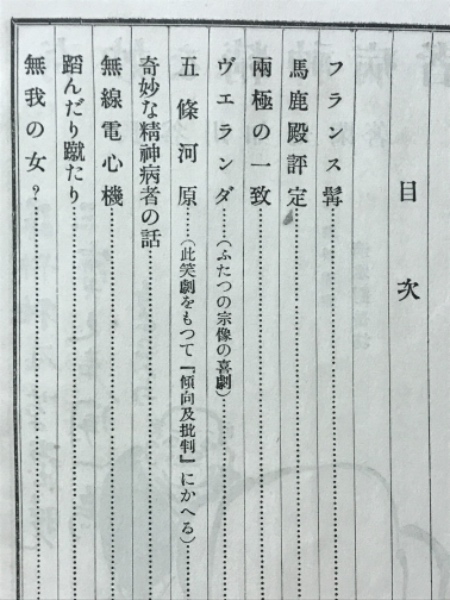 目次
フランス髷
馬鹿殿評定
兩極の一致
ヴェランダ……(ふたつの宗像の喜劇)……
五條河原……(此笑劇をもつて『傾向及批判』にかへる)……
奇妙な精神病者の話……
無線電心機……
蹈んだり蹴たり……
無我の女?……